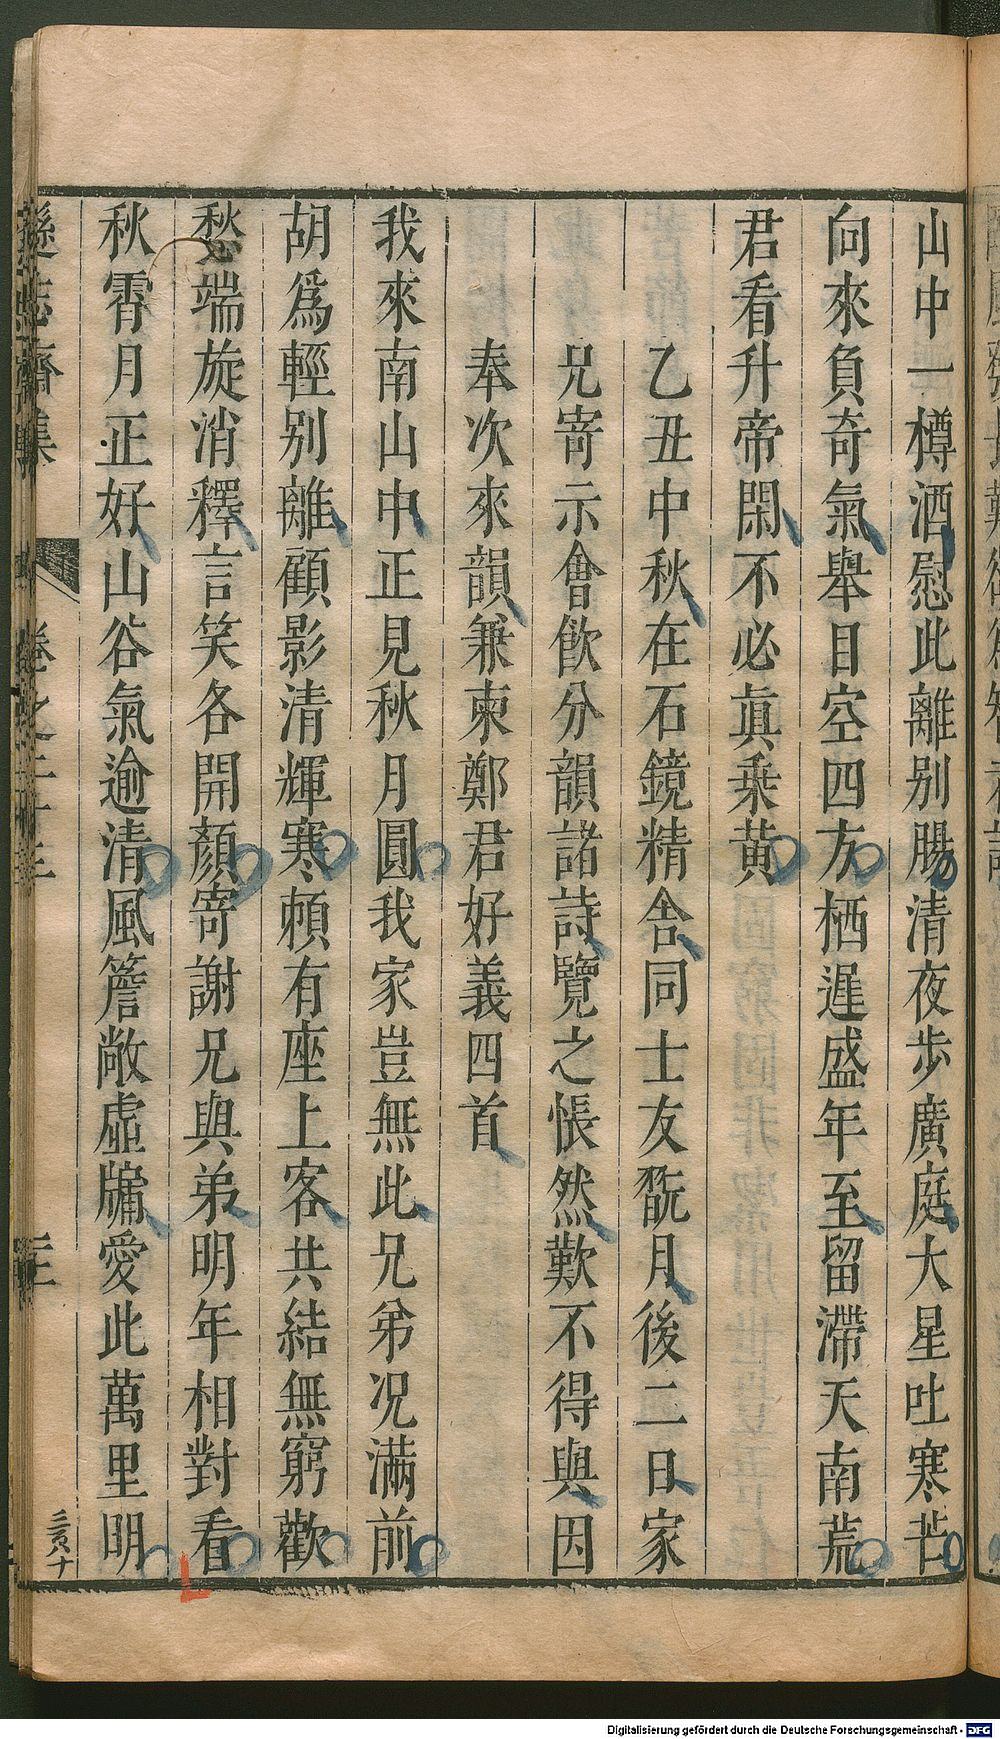 山中一樽酒慰此離别腸清夜步廣庭大星吐寒芒
向來負奇氣舉目空四方栖遲盛年至留滯天南荒
君看升帝閑不必眞乗黄
乙丑中秋在石鏡精舍同士友翫月後二日家
兄寄示會飲分韻諸詩覽之悵然歎不得與因
奉次來韻兼柬鄭君好義四首
我來南山中正見秋月圓我家豈無此兄弟况满前
胡爲輕别離顧影清輝寒頼有座上客共結無窮歡
愁端旋消釋言笑各開顏寄謝兄與弟明年相對看
秋霄月正好山谷氣逾清風簷敞虛牖愛此萬里明
遜志齋集
卷之二十三
二三
三百六十
Digitalisierung gefördert durch die Deutsche Forschungsgemeinschaft - DFG